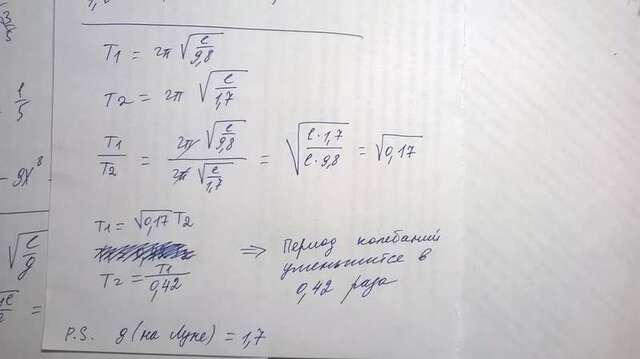 T1 = 2π √(l/9,8)
T2 = 2π √(l/1,7)
T1/T2 = 2π √(l/9,8) / 2π √(l/1,7) = √(l·1,7 / l·9,8) = √0,17
T1 = √0,17 T2
T2 = T1/0,42
=> Период колебаний
уменьшится в
0,42 раза
P.S. g (на Луне) = 1,7
1/5
- 9x⁸
√(l/g)